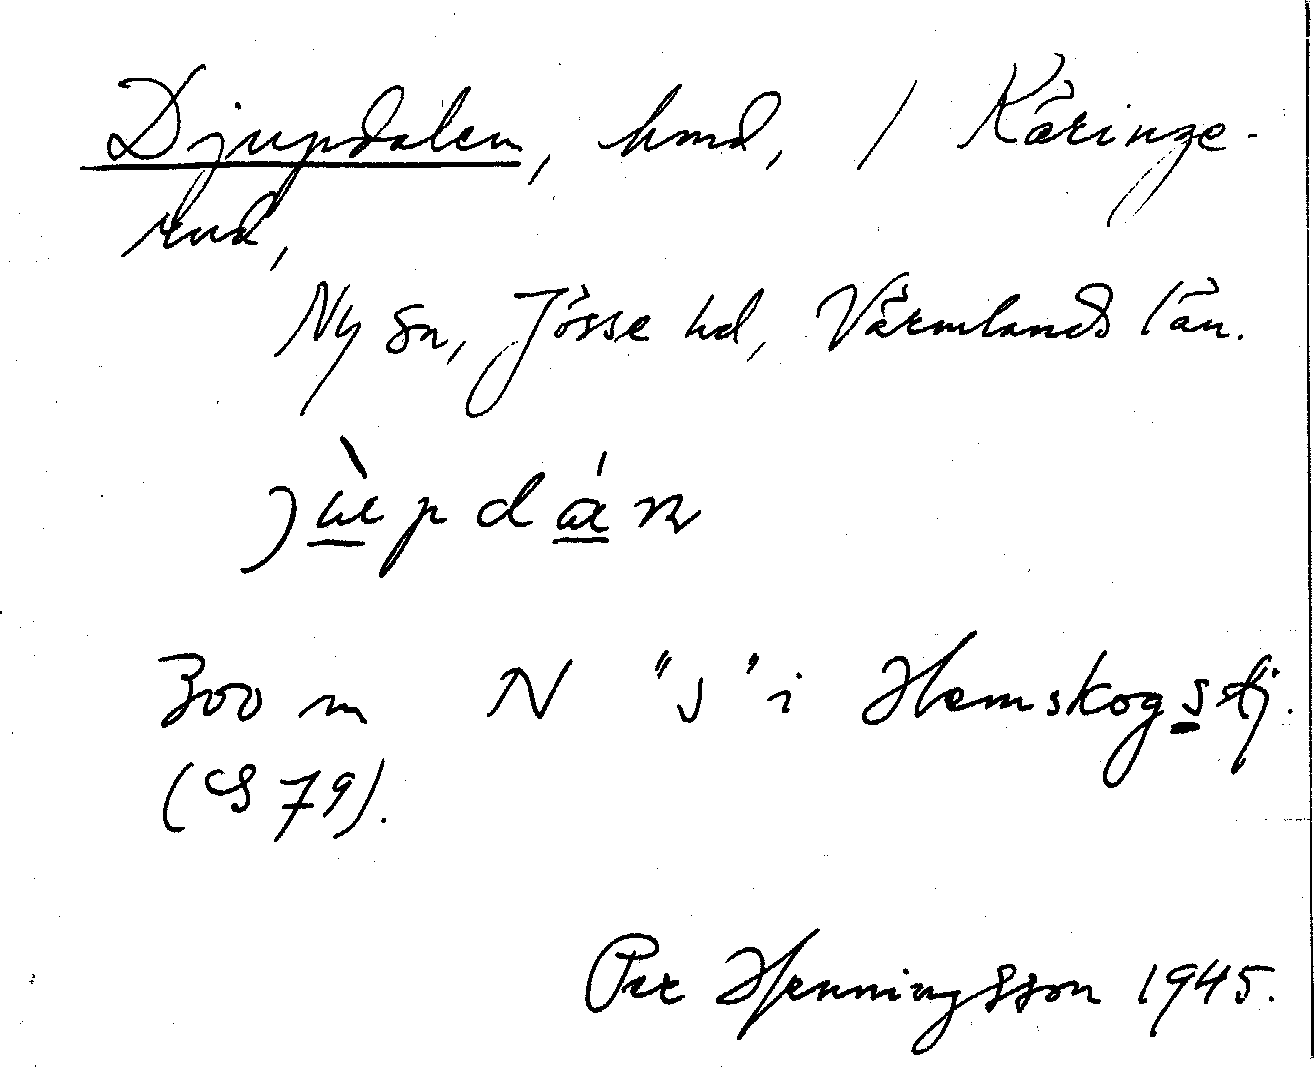 Djupdalen, hmd, / Käringe-
rud,
Ny sn, Jösse hd, Värmlands län.
300 m N "s" i Hemskogstj.
(S 79).
Per Henningsson 1945.